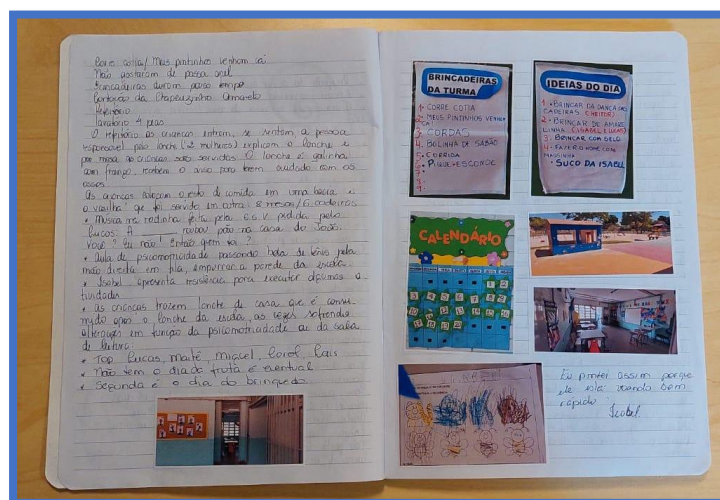 Corre cotia/ Meus pintinhos venham cá
Não gostaram de passa anel
Brincadeiras duram pouco tempo
Contação da Chapeuzinho Amarelo
Refeitório
lavatório 4 pias
O refeitório as crianças entram, se sentam, a pessoa
responsável pelo lanche (2 mulheres) explicam o lanche e
por mesa as crianças são servidas. O lanche é galinha
com frango, recebem o aviso para terem cuidado com os
ossos.
As crianças colocam o resto de comida em uma bacia e
a vasilha que foi servido em outra. 8 mesas/6 cadeiras
• Música na rodinha feita pela
Lucas: A ____ roubou pão na casa do João.
Você? Eu não! Então quem foi?
• Aula de psicomotricidade passando bola de tênis pela
mão direita em fila, empurrar a parede da escola.
• Isabel apresenta resistência para executar algumas a-
tividades
• as crianças trazem lanche de casa que é consu-
mido após o lanche da escola, às vezes sofrendo
alterações em função da psicomotricidade ou da sala
de leitura
• Top Lucas, Maitê, Miguel,
• Não tem o dia da fruta é eventual
• Segunda é o dia do brinquedo.
BRINCADEIRAS
DA TURMA
1. CORRE COTIA
2. MEUS PINTINHOS VENHAM
CÁ
3. CORDAS
4. BOLINHA DE SABÃO
5. CORRIDA
6. PIQUE-ESCONDE
7.
8.
9.
IDEIAS DO DIA
1. BRINCAR DA DANÇA DAS
CADEIRAS (HEITOR)
2. BRINCAR DE AMARE
LINHA (ISABEL E LUCAS)
3. BRINCAR COM GELO
4. FAZER O NOME COM
MASSINHA
SUCO DA ISABEL
CALENDÁRIO
Eu pintei assim porque
ele está voando bem
rápido.
Isabel.